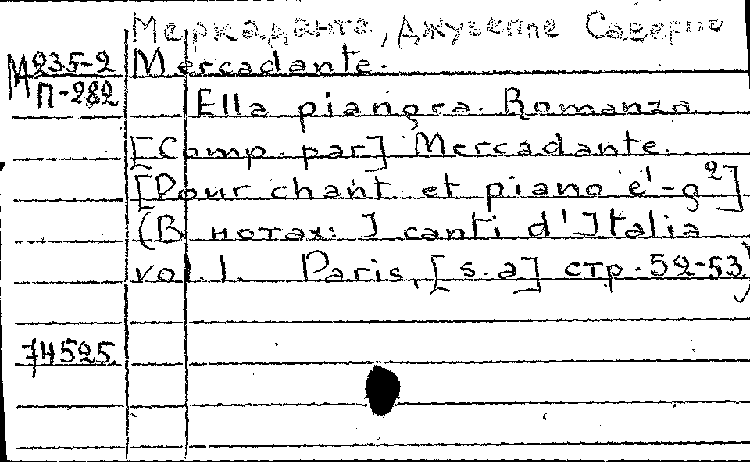 Меркаданте, Джузеппе Саверио
М 235-2
П-282
Mercadante.
Ella piangea. Romanza
[Comp. par] Mercadante.
[Pour chant et piano e¹-g²]
(В нотах: I canti d'Italia
vol. 1. Paris, [s.a] стр. 52-53)
74525